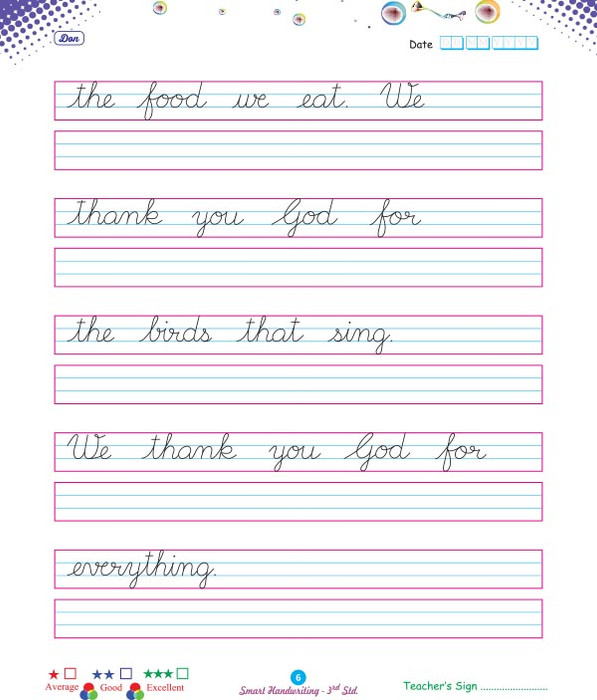 Don
Date
the food we eat. We
thank you God for
the birds that sing.
We thank you God for
everything.
Average Good Excellent
6
Smart Handwriting - 3rd Std.
Teacher's Sign ........................